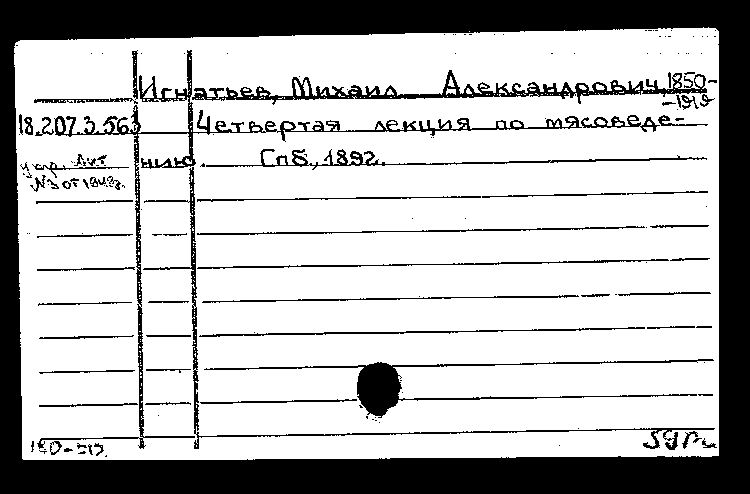 Игнатьев, Михаил Александрович, 1850-
-1919
18.207.3.563 Четвертая лекция по мясоведе-
нию. Спб., 1892.
Акт
№3 от